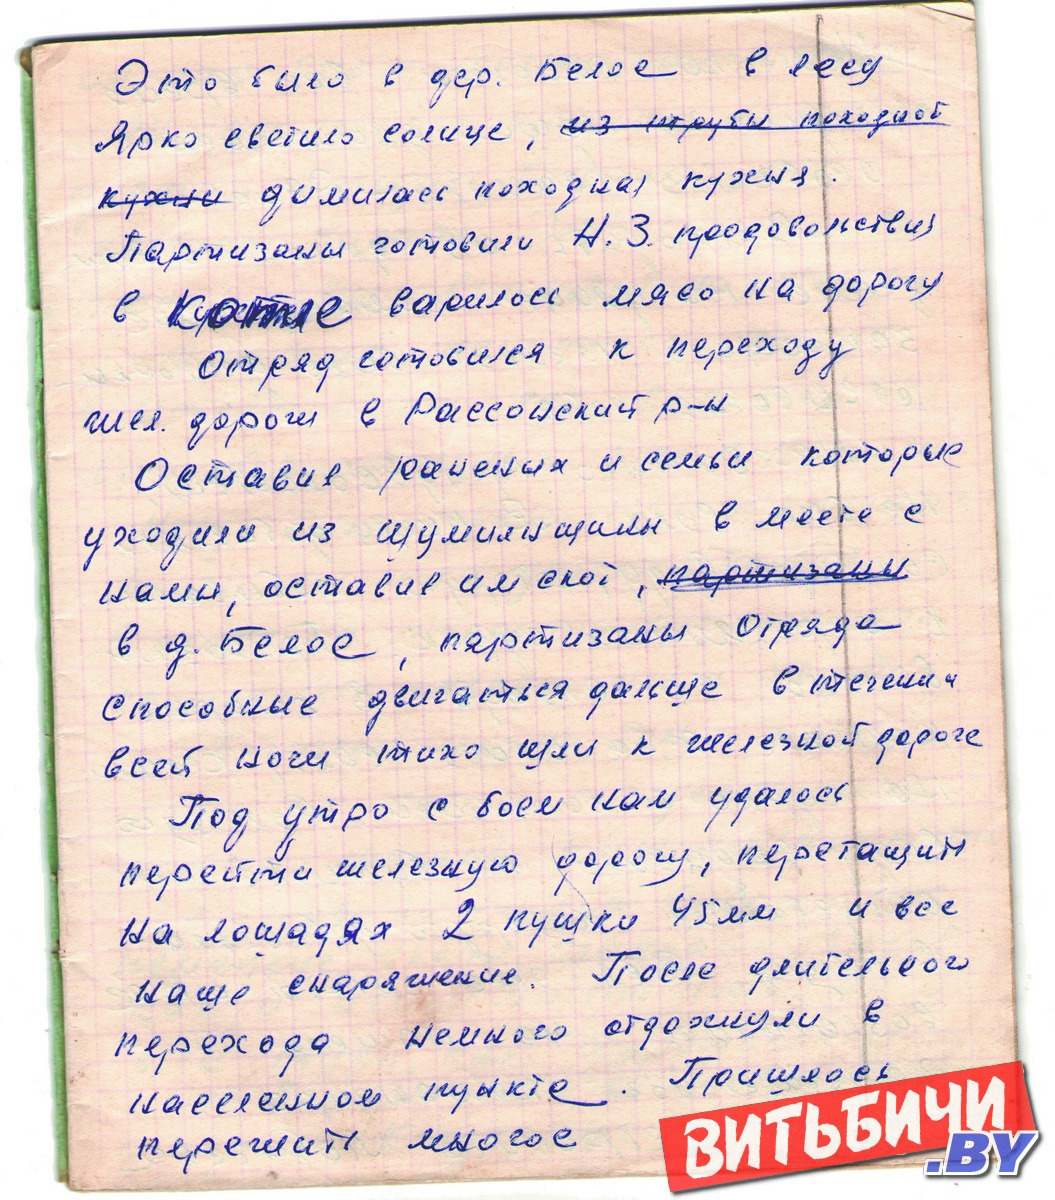 Это было в дер. Белое в лесу
Ярко светило солнце, из трубы походной
кухни дымилась походная кухня.
Партизаны готовили Н.З. продовольствия
в котле варилось мясо на дорогу
Отряд готовился к переходу
жел. дороги в Рассонский р-н
Оставив раненых и семьи которые
уходили из Шумилинщины в месте с
нами, оставив им скот, партизаны
в д. Белое, партизаны отряда
способные двигаться дальше в течении
всей ночи тихо шли к железной дороге
Под утро с боем нам удалось
перейти железную дорогу, перетащить
на лошадях 2 пушки 45мм и все
наше снаряжение. После длительного
перехода немного отдохнули в
населеном пункте. Пришлось
пережить многое
ВИТЬБИЧИ
.BY